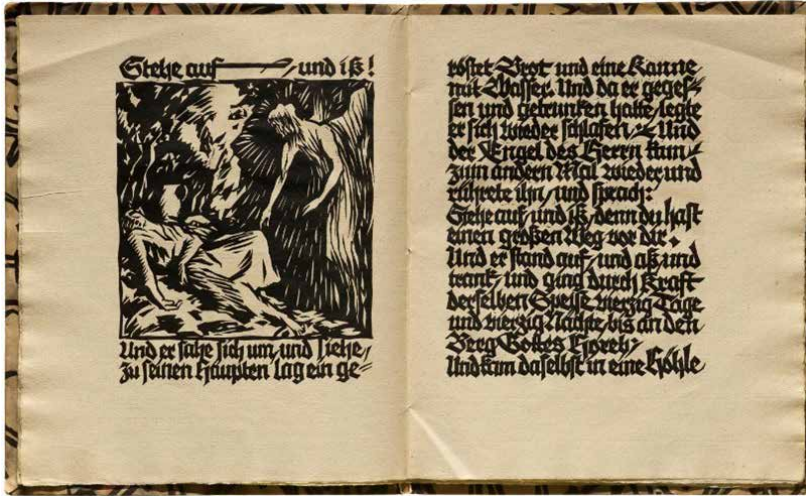 Stehe auf / und iß!
Und er sahe sich um, und siehe,
zu seinen Häupten lag ein ge=
röstet Brot und eine Kanne
mit Wasser. Und da er gegef=
sen und getrunken hatte, legte
er sich wieder schlafen / Und
der Engel des Herrn kam
zum andern Mal wieder, und
rührete ihn, und sprach:
Stehe auf, und iß, denn du hast
einen großen Weg vor dir.
Und er stand auf, und aß und
trank, und ging durch Kraft
derselben Speise vierzig Tage
und vierzig Nächte, bis an den
Berg Gottes Horeb,
Und kam daselbst in eine Höhle